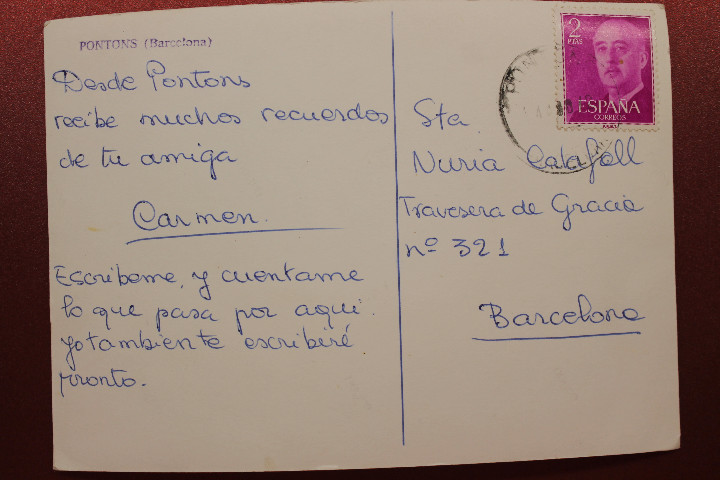 PONTONS (Barcelona)
Desde Pontons
recibe muchos recuerdos
de tu amiga
Carmen.
Escribeme, y cuentame
lo que pasa por aqui
yo tambiente escribiré
pronto.
2
PTAS
ESPAÑA
CORREOS
Sta.
Nuria Calafell
Travesera de Gracia
nº 321
Barcelona